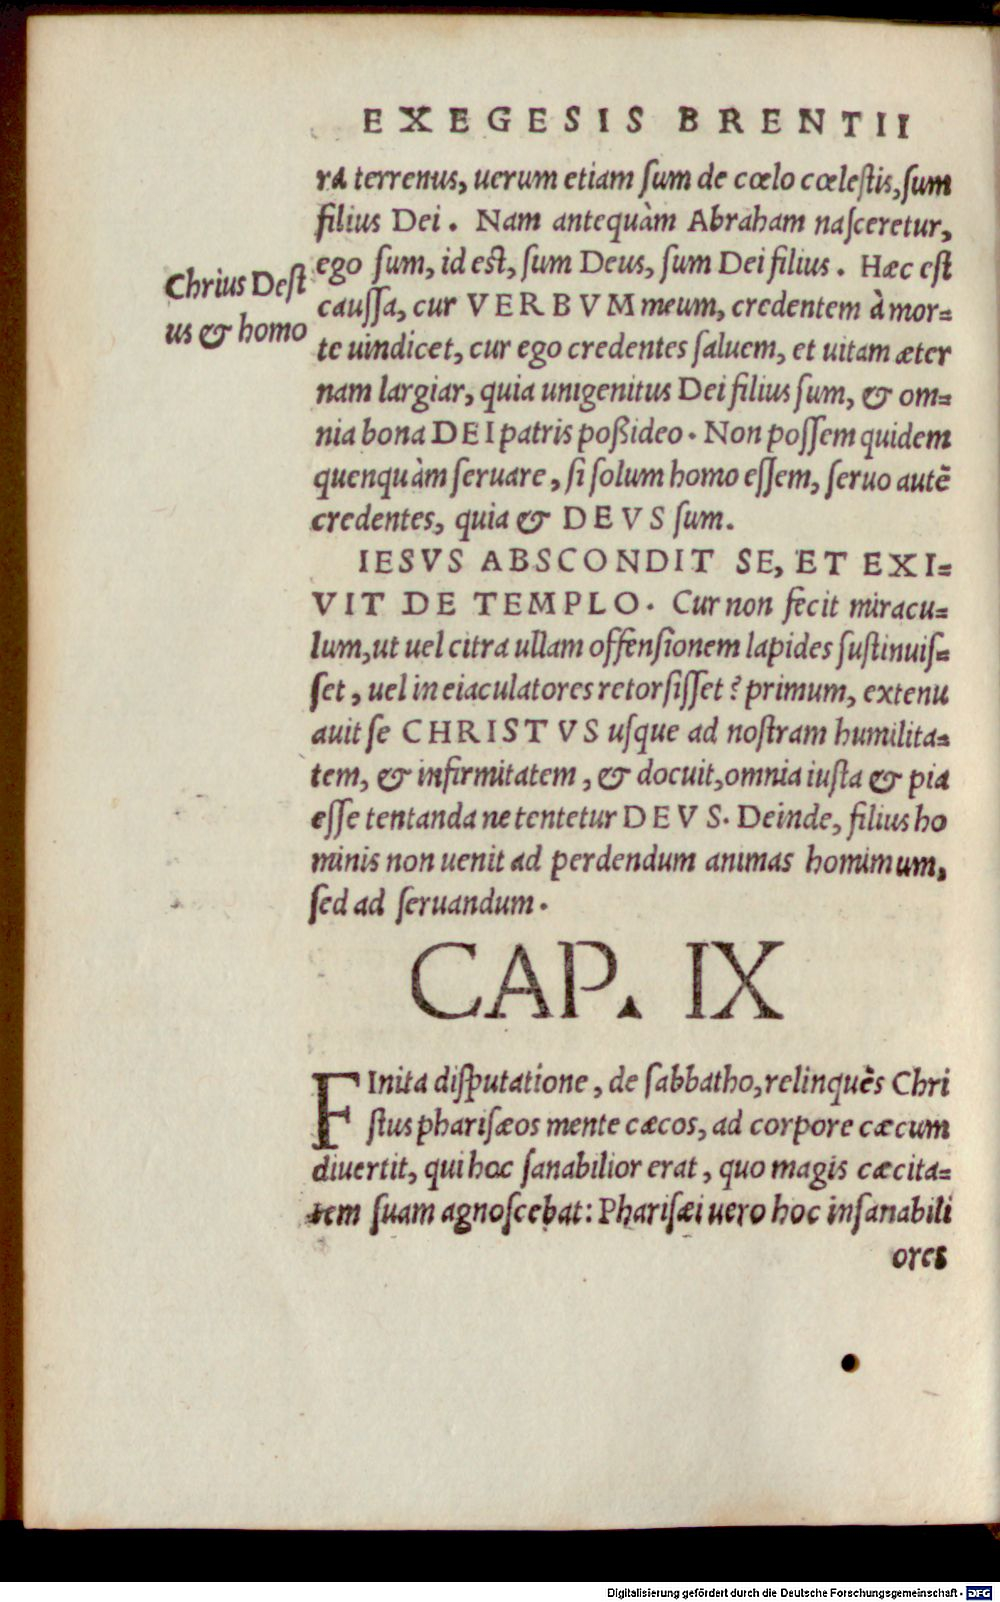 EXEGESIS BRENTII
ra terrenus, uerum etiam sum de cœlo cœlestis, sum
filius Dei. Nam antequàm Abraham nasceretur,
ego sum, id est, sum Deus, sum Dei filius. Hæc est
Chrius Dest
caussa, cur VERBVM meum, credentem à mor=
us & homo
te uindicet, cur ego credentes saluem, et uitam æter
nam largiar, quia unigenitus Dei filius sum, & om=
nia bona DEI patris poßideo. Non possem quidem
quenquàm seruare, si solum homo essem, seruo autẽ
credentes, quia & DEVS sum.
IESVS ABSCONDIT SE, ET EXI=
VIT DE TEMPLO. Cur non fecit miracu=
lum, ut uel citra ullam offensionem lapides sustinuis=
set, uel in eiaculatores retorsisset? primum, extenu
auit se CHRISTVS usque ad nostram humilita=
tem, & infirmitatem, & docuit, omnia iusta & pia
esse tentanda ne tentetur DEVS. Deinde, filius ho
minis non uenit ad perdendum animas homimum,
sed ad seruandum.
CAP. IX
FInita disputatione, de sabbatho, relinquẽs Chri
stus pharisæos mente cæcos, ad corpore cæcum
diuertit, qui hoc sanabilior erat, quo magis cæcita=
tem suam agnoscebat: Pharisæi uero hoc insanabili
ores
Digitalisierung gefördert durch die Deutsche Forschungsgemeinschaft - DFG